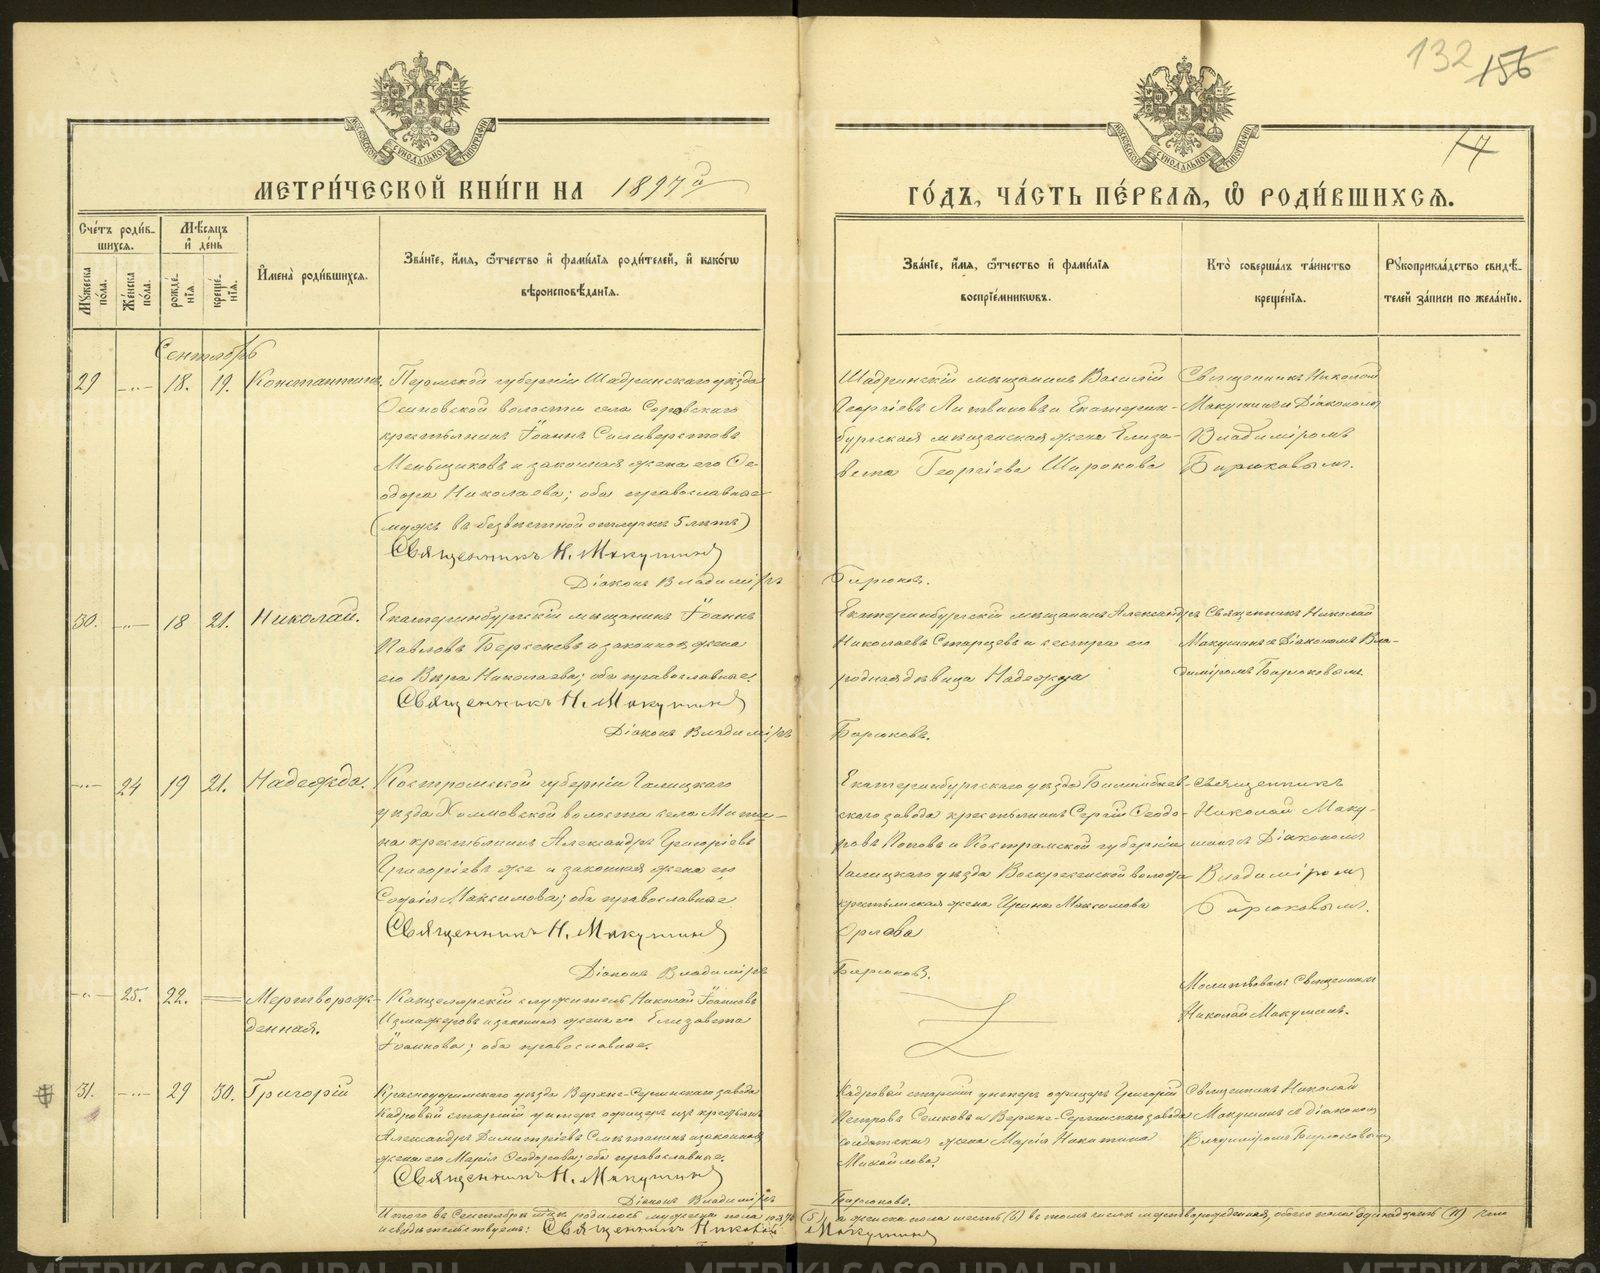 132 156
17
МОСКОВСКОЙ СУНОДАЛЬНОЙ ТИПОГРАФІИ
МОСКОВСКОЙ СУНОДАЛЬНОЙ ТИПОГРАФІИ
МЕТРИ́ЧЕСКОЙ КНИ́ГИ НА 1897й
ГО́ДЪ, ЧА́СТЬ ПЕ́РВАЯ, Ѽ РОДИ́ВШИХСЯ.
Сче́тъ роди́в-
шихся.
Мꙋжеска по́ла.
Же́нска по́ла.
Мѣ́сяцъ
и҆ де́нь
рожде́-
нія
креще́-
нія.
И҆мена̀ роди́вшихся.
Зва́ніе, и҆́мя, ѻ҆́тчество и҆ фами́лія роди́телей, и҆ како́гѡ
вѣроисповѣ́данія.
Зва́ніе, и҆́мя, ѻ҆́тчество и҆ фами́лія
воспріе́мникѡвъ.
Кто̀ соверша́лъ та́инство
креще́нія.
Рꙋкоприкла́дство свидѣ́-
телей за́писи по жела́нію.
Сентябрь
29 -„- 18. 19. Константинъ.
Пермской губерніи Шадринскаго уѣзда
Осиновской волости села
крестьянинъ Іоаннъ Силиверстовъ
Меньщиковъ и законная жена его Ѳе-
одора Николаева; оба православные
(мужъ въ безвѣстной отлучкѣ 5 лѣтъ)
Священникъ Н. Макушинъ
Діаконъ Владиміръ
Шадринскій мѣщанинъ Василій
Георгіевъ Литвиновъ и Екатерин-
бургская мѣщанская жена Елиза-
вета Георгіева Широкова
Бирюковъ.
Священникъ Николай
Макушинъ и Діакономъ
Владиміромъ
Бирюковымъ.
30. -„- 18 21. Николай.
Екатеринбургскій мѣщанинъ Іоаннъ
Павловъ Берсеневъ и законная жена
его Вѣра Николаева; оба православные.
Священникъ Н. Макушинъ
Діаконъ Владиміръ
Екатеринбургскій мѣщанинъ Александръ
Николаевъ Старцевъ и сестра его
родная дѣвица Надежда
Бирюковъ.
Священникъ Николай
Макушинъ и Діакономъ Вла-
диміромъ Бирюковымъ.
-„- 24 19 21. Надежда.
Костромской губерніи Галицкаго
уѣзда Холмовской волости села Мити-
на крестьянинъ Александръ Григоріевъ
Григоріевъ же и законная жена его
Софія Максимова; оба православные
Священникъ Н. Макушинъ
Діаконъ Владиміръ
Екатеринбургскаго уѣзда Билимбаев-
скаго завода крестьянинъ Сергій Ѳеодо-
ровъ Поповъ и Костромской губерніи
Галицкаго уѣзда Воскресенской волости
крестьянская жена Ирина Максимова
Орлова
Бирюковъ.
Священникъ
Николай Маку-
шинъ съ Діакономъ
Владиміромъ
Бирюковымъ.
-„- 25. 22. = Мертворож-
денная.
Канцелярскій служитель Николай Іоанновъ
Измажеровъ и законная жена его Елизавета
Іоаннова; оба православные.
Молитвовалъ Священникъ
Николай Макушинъ.
31. -„- 29 30. Григорій
Красноуфимскаго уѣзда Верхне-Сергинскаго завода
Кадровый старшій унтеръ офицеръ изъ крестьянъ
Александръ Димитріевъ Сметанинъ и законная
жена его Марія Ѳеодорова; оба православные.
Священникъ Н. Макушинъ
Діаконъ Владиміръ
Кадровый старшій унтеръ офицеръ Григорій
Петровъ Семковъ и Верхне-Сергинскаго завода
солдатская жена Марія Никитина
Михайлова.
Бирюковъ.
Священникъ Николай
Макушинъ съ діакономъ
Владиміромъ Бирюковымъ
Итого въ Сентябрѣ мѣс. родилось мужеска пола пять (5), а женска пола шесть (6) въ томъ числѣ мертворожденная, обоего пола одинадцать (11) чемъ
и свидѣтельствуемъ: Священникъ Николай Макушинъ
METRIKI.GASO-URAL.RU